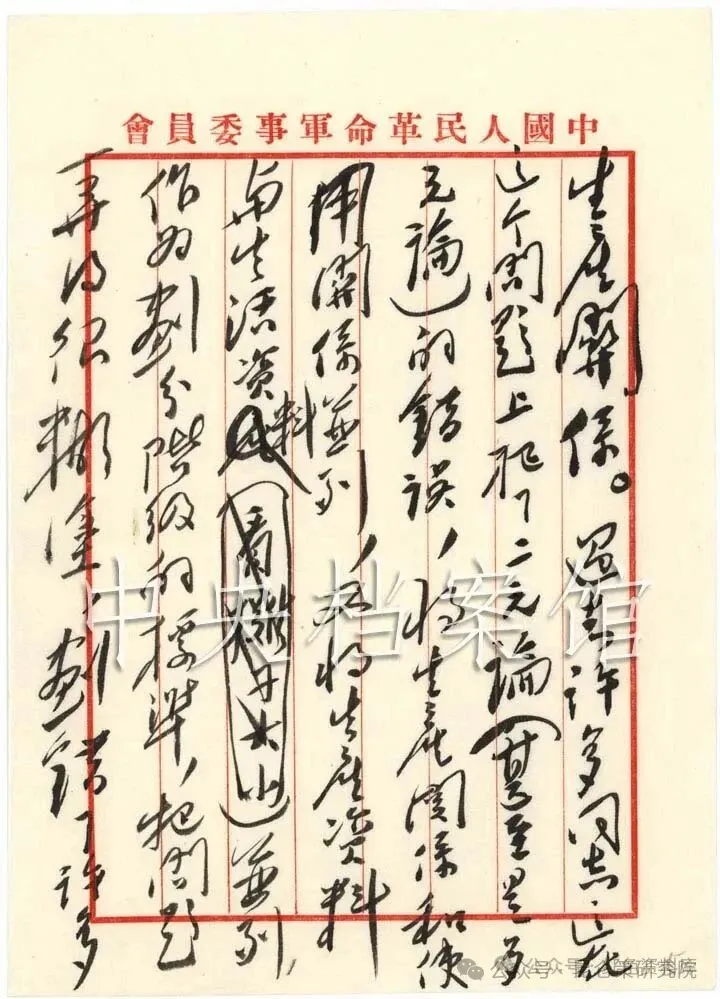 中國人民革命軍事委員會
生產關係。過去許多同志在
这个問題上犯了二元論（甚至是多
元論）的錯誤，将生產關係和使
用關係並列，又将生產资料
与生活资料並列，
作为劃分階级的標準，把問題
弄得很糊塗，劃錯了許多
中央档案馆
公众号·昆仑策研究院